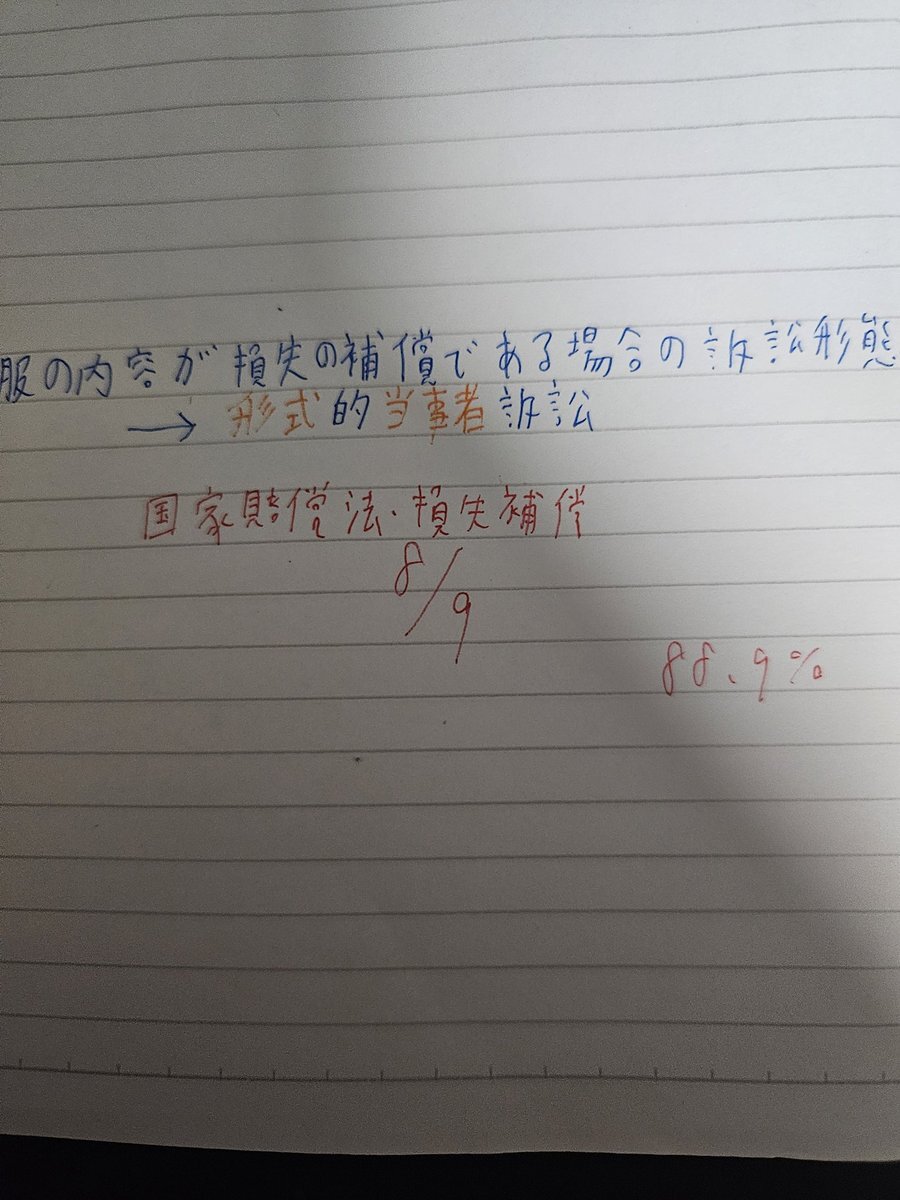 服の内容が損失の補償である場合の訴訟形態
→ 形式的当事者訴訟
国家賠償法・損失補償
8/9
88.9%